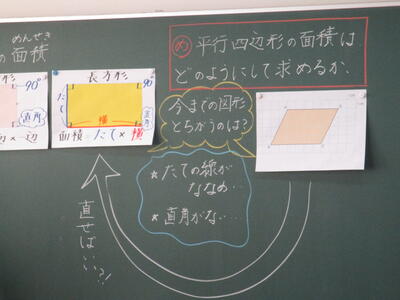 めんせき
の面積
形
90°
直角
辺×辺
長方形
90°
たて
横
直角
面積=たて×横
め 平行四辺形の面積は
どのようにして求めるか。
今までの図形
とちがうのは?
★たての線が
ななめ…
★直角がない…
直せばいい?!